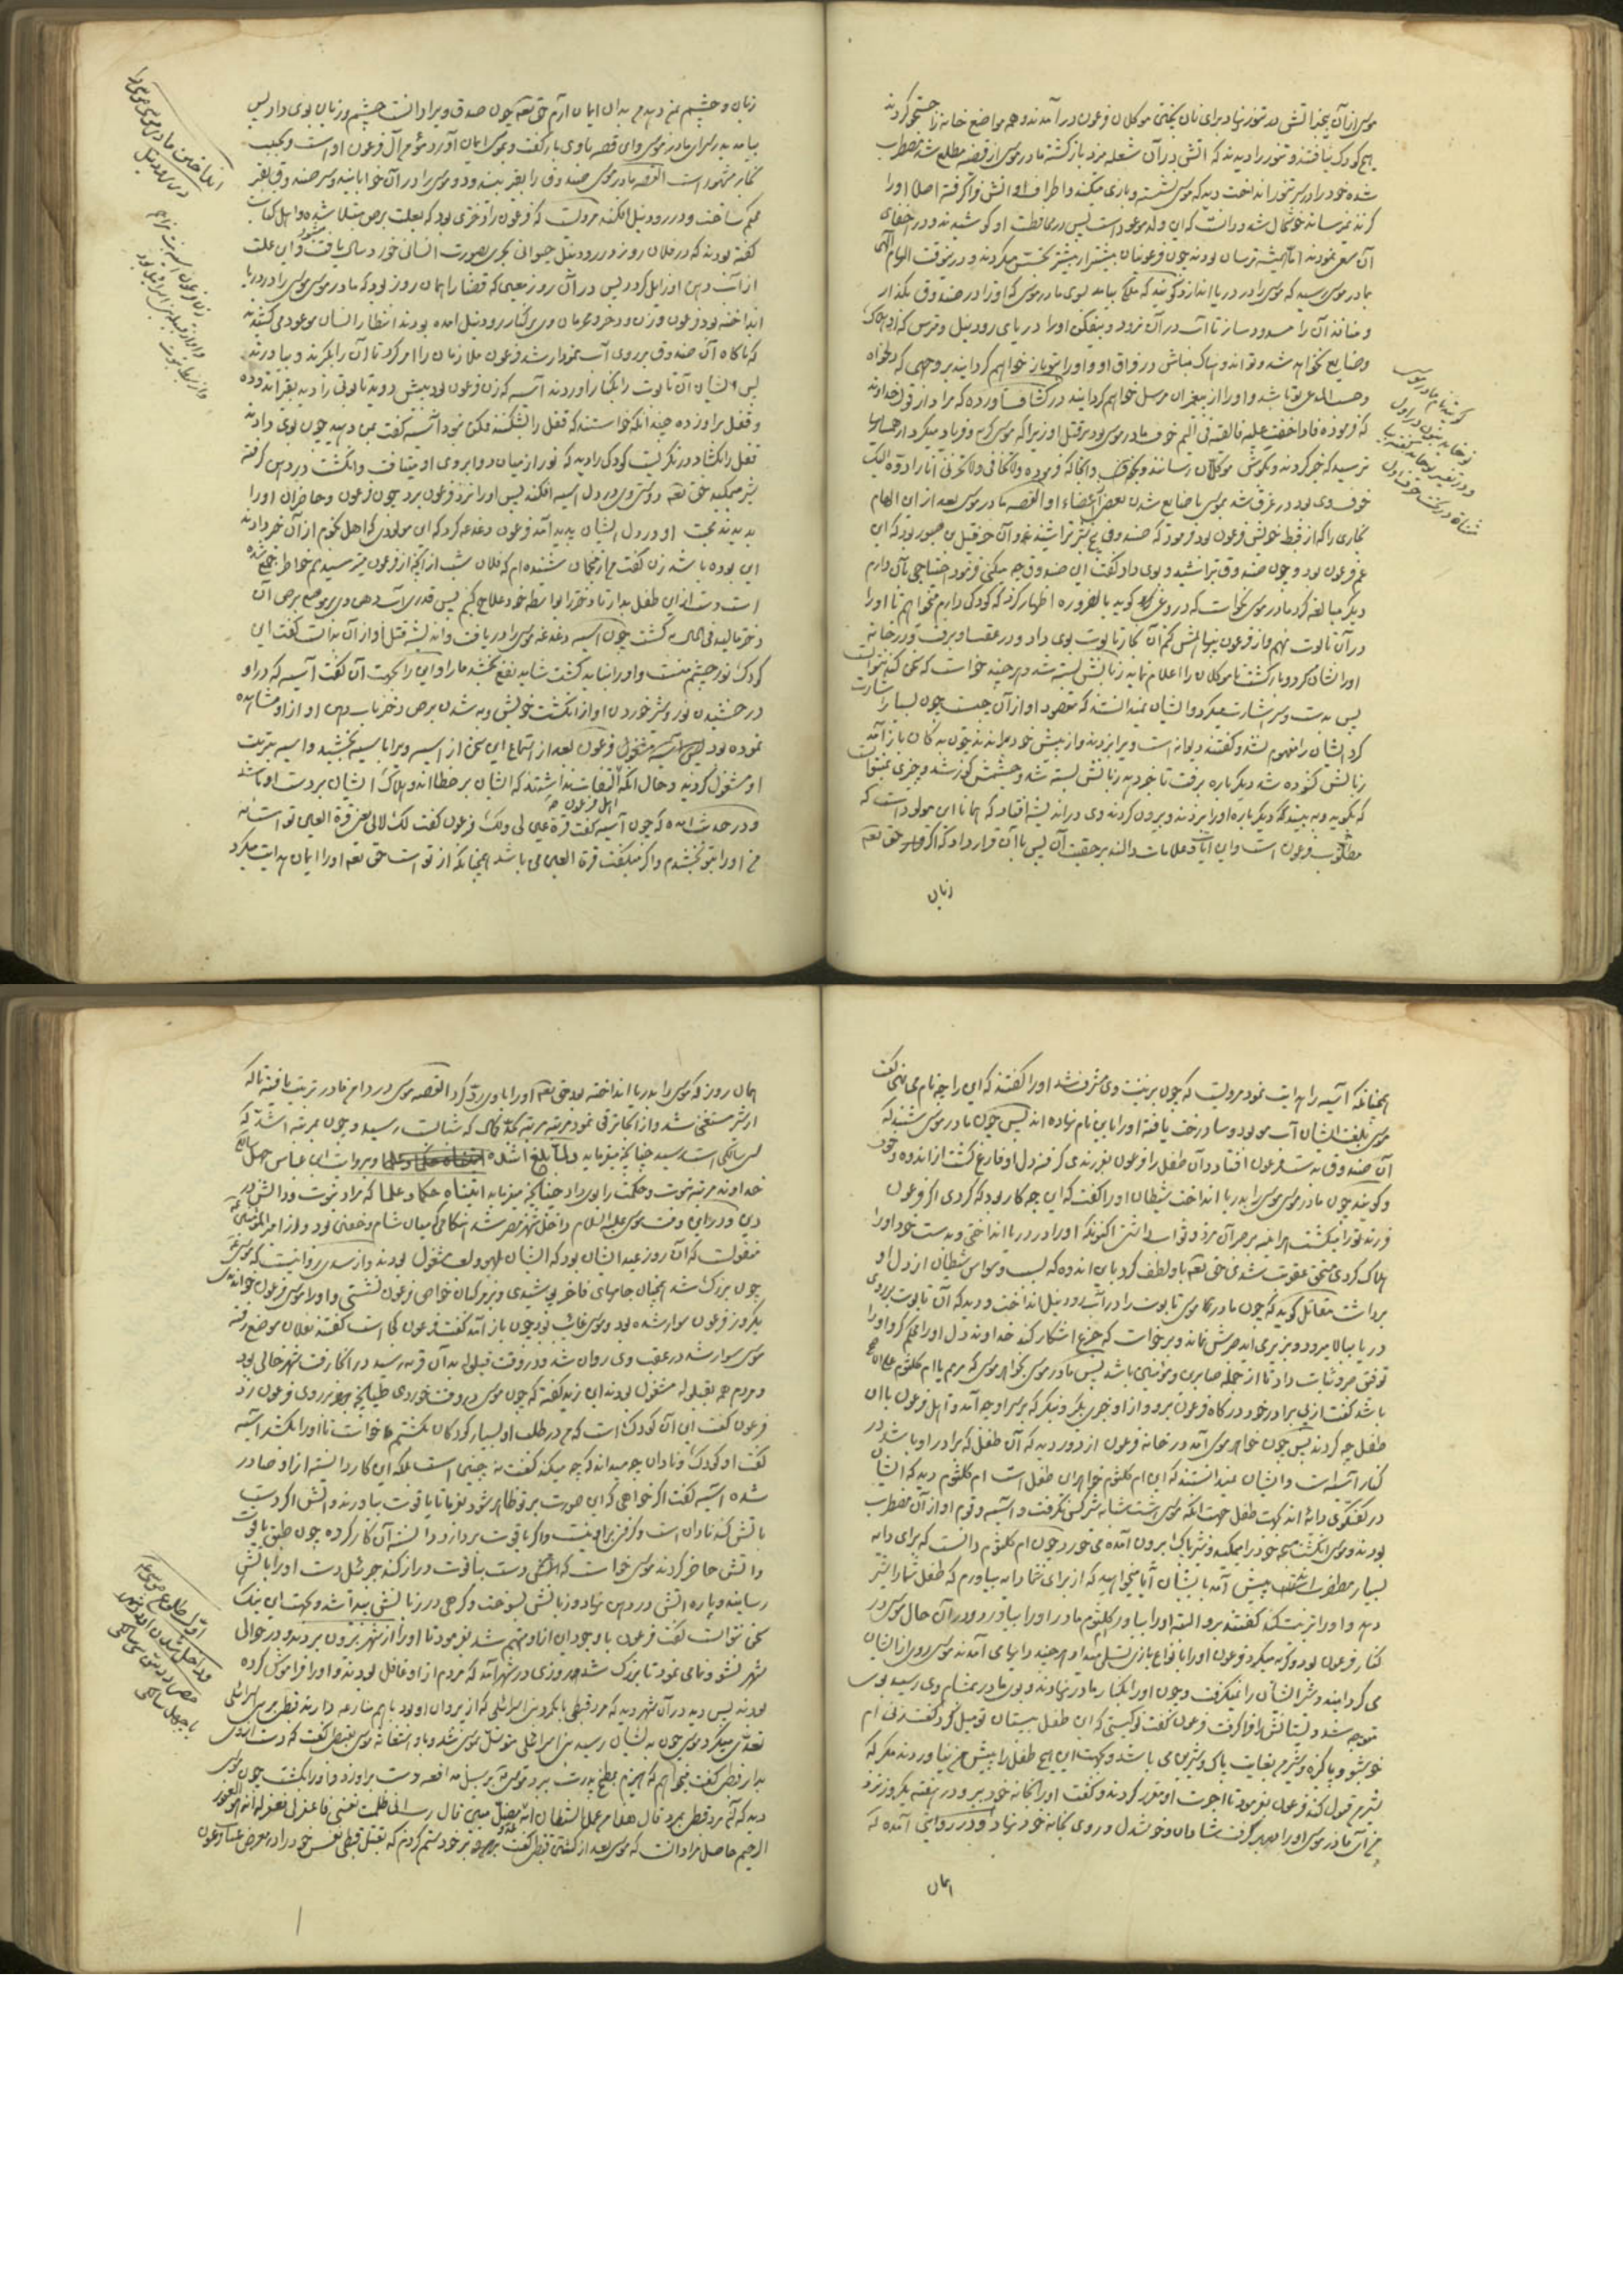 موسی از آن بیخبر آتش در تنور نهاد برای نان پختن موکلان فرعون در آمدند و همه مواضع خانه را جستجو کردند
هیچ کودک نیافتند و تنور را دیدند که آتش در آن شعله میزد بازگشتند مادر موسی از قضیه مطلع شد مضطرب
شده خود را بر سر تنور انداخت دید که موسی نشسته و بازی میکند و اطراف او آتش فرا گرفته اصلا او را
گزند نمیرساند خوشحال شد و دانست که این ولد موعود است پس در محافظت او کوشیدند و در اخفای
آن سعی نمودند اما همیشه ترسان بودند چون فرعونیان بیشتر از پیشتر تجسس میکردند و در آنوقت الهام الهی
بمادر موسی رسید که موسی را در دریا اندازد و گویند که ملکی بیامد بسوی مادر موسی که او را در صندوق بگذار
و منافذ آن را مسدود ساز تا آب در آن نرود و بیفکن او را در دریای رود نیل و مترس که او هلاک
و ضایع نخواهد شد و اندوهناک مباش در فراق او و او را بتو باز خواهم گردانید بر وجهی که دلخواه
و حسب المدعی تو باشد و او را از پیغمبران مرسل خواهم گردانید در کشاف آورده که مراد از قول خداوند
که فرموده فاذا خفت علیه فالقیه فی الیم خوف مادر موسی بود بر قتل او زیرا که موسی گریه و فریاد میکرد از همسایها
ترسید که خبر کردند و بگوش موکلان رسانند و آنجا که فرموده ولا تخافی ولا تحزنی انا رادوه الیک
خوف وی بود در غرق شدن موسی یا ضایع شدن بعض اعضاء او القصه مادر موسی بعد از این الهام
نجاری را که از قبط خویش فرعون بود فرمود که صندوقی پنج شبر تراشید و آن حزقیل بن صبور بود که ابن
عم فرعون بود و چون صندوق تراشید و بوی داد گفت این صندوق چه میکنی فرمود احتیاجی بآن دارم
دیگر مبالغه کرد مادر موسی نخواست که دروغ گوید بالضروره اظهار کرد که کودکی دارم میخواهم تا او را
در آن تابوت نهم و از فرعون پنهانش کنم آن نجار تابوت بوی داد و در عقب او برفت و در خانه
او را نشان کرد و بازگشت تا موکلان را اعلام نماید زبانش بسته شد هر چند خواست که سخن کند نتوانست
پس بدست و سر اشارت میکرد و ایشان نمیدانستند که مقصود او از آن چیست چون بسیار اشارت
کرد ایشان را مفهوم نشد و گفتند دیوانه است و بر او زدند و از پیش خود براندند چون بدکان باز آمد
زبانش گشوده شد دیگر باره برفت تا خبر دهد زبانش بسته شد و چشمش کور شد و چیزی نمیتوانست
که بگوید و به بیند دیگر باره او را بزدند و بیرون کردند وی در اندیشه افتاد که همانا این مولود است که
مطلوب فرعون است و این آیات و علامات دالند بر حقیت آن پس با آن قرار داد که اگر حق تعالی
زبان
گویند نام مادر موسی
نوخاید بنون در اول
و در تفسیر
زبان و چشم بمن دهد من بدان ایمان آرم حق تعالی چون صدق ویرا دانست چشم و زبان بوی داد پس
بیامد بدر سرای مادر موسی و این قصه با وی باز گفت و بموسی ایمان آورد مؤمن آل فرعون او است و بحبیب
نجار مشهور است القصه مادر موسی صندوق را بقیر بیندود و موسی را در آن خوابانید و سر صندوق بقیر
محکم ساخت و در رود نیل افکند مرویست که فرعون را دختری بود که بعلت برص مبتلا شده و اهل کتاب
گفته بودند که در فلان روز در رود نیل حیوانی بحری بصورت انسانی خورد سال یافت مشود و این علت
از آب دهن او زایل گردد پس در آن روز معین که قضا را همان روز بود که مادر موسی موسی را در دریا
انداخته بود فرعون و زن و دختر و محرمان وی بر کنار رود نیل آمده بودند انتظار انسان موعود می کشیدند
که ناگاه آن صندوق بر روی آب نمودار شد فرعون ملازمان را امر کرد تا آن را بگیرند و بیاورند
پس ایشان آن تابوت را بکنار آوردند آسیه که زن فرعون بود پیش دوید تابوتی را دید بقیر اندوده
و قفل بر او زده چندانکه خواستند که قفل را بشکنند ممکن نبود آسیه گفت بمن دهید چون بوی دادند
قفل را بگشاد و در نگریست کودکی را دید که نور از میان دو ابروی او میتافت و انگشت در دهن گرفته
شیر میمکید حق تعالی دوستی وی در دل آسیه افکند پس او را نزد فرعون برد چون فرعون و حاضران او را
بدیدند محبت او در دل ایشان پدید آمد فرعون دغدغه کرد که این مولودی که اهل نجوم از آن خبر دادند
این بوده باشد زن گفت من از منجمان شنیده ام که فلان شب از آنچه از فرعون میترسیدیم خاطر جمع شده
است دست از این طفل بدار تا دختر را بواسطه خود علاج کنم پس قدری آب دهن وی بر موضع برص آن
دختر مالید فی الحال به گشت چون آسیه دغدغه موسی را دریافت و اندیشه قتل او از آن بدانست گفت این
کودک نور چشم منست و او را نباید کشت شاید نفع بخشد ما را و این را بجهت آن گفت آسیه که در او
درخشیدن نور و شیر خوردن او از انگشت خویش و به شدن برص دختر بآب دهن او از او مشاهده
نموده بود فرعون بعد از استماع این سخن از آسیه ویرا بآسیه بخشید و آسیه بتربیت
او مشغول گردید و حال آنکه التفات نداشتند که ایشان بر خطااند و هلاک ایشان بر دست او باشد
اهل فرعون
و در حدیث آمده که چون آسیه گفت قرة عین لی و لک فرعون گفت لک لا لی یعنی قرة العین تو است نه
من او را بتو بخشیدم و اگر میگفت قرة العین من باشد همچنانکه از تو است حق تعالی او را ایمان هدایت میکرد
انداختن مادر موسی موسی را
در رود نیل
همچنانکه آسیه را هدایت نمود مرویست که چون بر تربیت وی مشرف شد او را گفتند که این را چه نام می نهی گفت
موسی بلغت ایشان آب مو بود و سا درخت یافته او را باین نام نهاده اند پس چون مادر موسی شنید که
آن صندوق بدست فرعون افتاد و آن طفل را فرعون بفرزندی گرفته دل او فارغ گشت از اندوه و خوف
و گویند چون مادر موسی موسی را بدریا انداخت شیطان او را گفت که این چه کار بود که کردی اگر فرعون
فرزند تو را میکشت هر آینه بر صبر آن مزد و ثواب داشتی اکنونکه او را در دریا انداختی و بدست خود او را
هلاک کردی مستحق عقوبت شدی حق تعالی باو لطف کرد باین اندوه که بسبب وسواس شیطان از دل او
برداشت مقاتل گوید که چون مادر موسی تابوت را در آب رود نیل انداخت و دید که آن تابوت بر روی
دریا ببالا میرود و بزیر می آید صبرش نماند و برخواست که جزع آشکار کند خداوند دل او را محکم کرد و او را
توفیق صبر و ثبات داد تا از جمله صابرین و مؤمنین باشد پس مادر موسی بخواهر موسی که مریم یا ام کلثوم
باشد گفت از پی برادر خود در گاه فرعون برو و از او خبری بگیر و بنگر که بر سر او چه آمد و آل فرعون با آن
طفل چه کردند پس چون خواهر موسی آمد در خانه فرعون از دور دید که آن طفل که برادر او باشد در
کنار آسیه است و ایشان نمیدانستند که این ام کلثوم خواهر آن طفل است ام کلثوم دید که ایشان
در گفتگوی دایه اند بجهت طفل جهت آنکه موسی شیر کس نگرفت و آسیه و قوم او از آن مضطرب
بودند و موسی انگشت مسبحه خود را میمکید و شیر پاک بیرون آمده می خورد چون ام کلثوم دانست که برای دایه
بسیار مضطربند پیش آمد بایشان آیا میخواهید که از برای شما دایه بیاورم که طفل شما را شیر
دهد و او را تربیت کند گفتند برو البته او را بیاور کلثوم مادر او را بیاورد و در آن حال موسی در
کنار فرعون بود و گریه میکرد و فرعون او را بانواع بازی تسلی میداد هر چند دایها می آمدند موسی روی از ایشان
می گردانید و شیر ایشان را نمیگرفت و چون او را بکنار مادر نهادند و بوی مادر بمشام وی رسید بوی
متوجه شد و پستانش را فرا گرفت فرعون گفت تو کیستی که این طفل بپستان تو میل کرد گفت زنی ام
خوشبو و پاکیزه و شیر من بغایت پاک و شیرین می باشد و بجهت این هیچ طفل را پیش من نیاوردند مگر که
شیر من قبول کند فرعون بفرمود تا اجرت او مقرر کردند و گفت او را بخانه خود ببر و در هفته یکروز نزد
من آر مادر موسی او را بمهد گرفت شادان و خوشدل و روی بخانه خود نهاد و در روایتی آمده که
همان
همان روز که موسی را بدریا انداخته بود حق تعالی او را باو رد کرد القصه موسی در دامن مادر تربیت یافته تا که
از شیر مستغنی شد و از آنجا ترقی نمود مرتبه بمرتبه بحد کمال که شبابست رسید و چون بمرتبه اشد که
سی سالگی است رسید چنانچه میفرماید و لما بلغ اشده و بروایت ابن عباس چهل سالگی
خداوند مرتبه نبوت و حکمت را بوی داد چنانچه میفرماید آتیناه حکما و علما که مراد نبوت و دانش در
دین و در این وقت موسی علیه السلام داخل شهر مصر شد هنگامی که میان شام و خفتن بود و از امیر المؤمنین
منقولست که آن روز عید ایشان بود که ایشان بلهو و لعب مشغول بودند و از سدی روایتست که موسی
چون بزرگ شد همچنان جامهای فاخر پوشیدی و بر مرکبان خواص فرعون نشستی و او را موسی فرعون خواندندی
یکروز فرعون سوار شده بود و موسی غایب بود چون باز آمد گفت فرعون کجا است گفتند بفلان موضع رفته
موسی سوار شد در عقب وی روان شد و در وقت قیلوله بدان قریه رسید در آنجا رفت شهر خالی بود
و مردم همه بقیلوله مشغول بودند ابن زید گفته که چون موسی در وقت خوردی طپانچه بر روی فرعون زد
فرعون گفت این آن کودک است که من در طلب او بسیار کودکان بکشتم خواست تا او را بکشد آسیه
گفت او کودک و نادان چه میداند که چه میکند گفت نه چنین است بلکه این کار دانسته از او صادر
شده آسیه گفت اگر خواهی که این صورت بر تو ظاهر شود بفرما تا یاقوت بیاورند و آتش اگر دست
بآتش کند نادان است و اگر بیاقوت پردازد دانسته آن کار کرده چون طبق یاقوت
و آتش حاضر کردند موسی خواست که دست بیاقوت دراز کند جبرئیل دست او را بآتش
رسانید و پاره آتش در دهن نهاد و زبانش بسوخت و گرهی در زبانش پیدا شد و بجهت این نیک
سخن نتوانست گفت فرعون با وجود این از او متهم شد بفرمود تا او را از شهر بیرون بردند و در حوالی
شهر نشو و نما می نمود تا بزرگ شد روزی در شهر آمد که مردم از او غافل بودند و او را فراموش کرده
بودند پس دید در آن شهر دو مرد که مرد قبطی با یکمرد بنی اسرائیلی که از پیروان او بود با هم منازعه دارند قبطی بر بنی اسرائیلی
تعدی میکرد موسی چون بایشان رسید بنی اسرائیلی متوسل بموسی شد و باو استغاثه موسی بقبطی گفت که دست از وی
بدار قبطی گفت میخواهم که هیزم بمطبخ پدرت ببرد موسی بر سبیل مدافعه دست بر او زد و او را بکشت چون موسی
دید که آن مرد قبطی بمرد قال هذا من عمل الشیطان انه عدو مضل مبین قال رب انی ظلمت نفسی فاغفر لی فغفر له انه هو الغفور
الرحیم حاصل مراد آنست که موسی بعد از کشتن قبطی گفت بر خود ستم کردم که بقتل قبطی نفس خود را در معرض عتاب فرعون
اول طلوع موسی
و داخل شدن او در شهر
مصر در سن سی سالگی
یا چهل سالگی